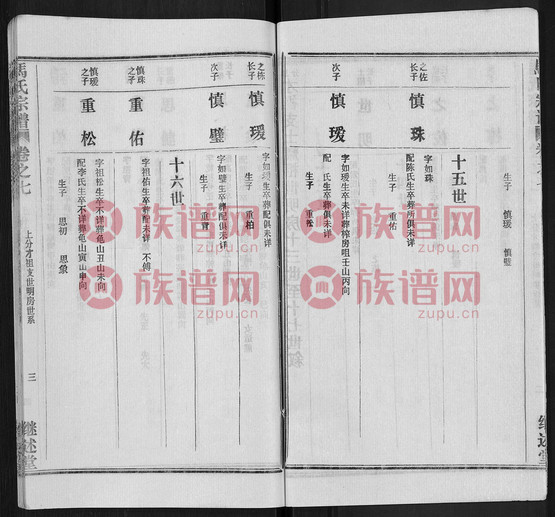 生子 慎瑗 慎璧
十五世
之佐
长子 慎珠
字如珠
配陈氏生卒葬所俱未详
生子 重佑
次子 慎瑗
字如瑗生卒未详葬榨房咀壬山丙向
配 氏生卒葬俱未详
生子 重松
之栋
长子 慎瑗
字如 生卒葬配俱未详
生子 重柏
次子 慎璧
字如璧生卒葬配俱未详
生子 重
十六世
慎珠
之子 重佑
字祖佑生卒葬配未详 不傅
慎瑗
之子 重松
字祖松生卒不详葬龟山丑山未向
配李氏生卒不详葬龟山寅山申向
生子 思初 思
馬氏宗譜 卷之七
上分才祖支世明房世系
三
继述堂
继述堂
族谱网
zupu.cn
族谱网
zupu.cn
族谱网
zupu.cn
族谱网
zupu.cn